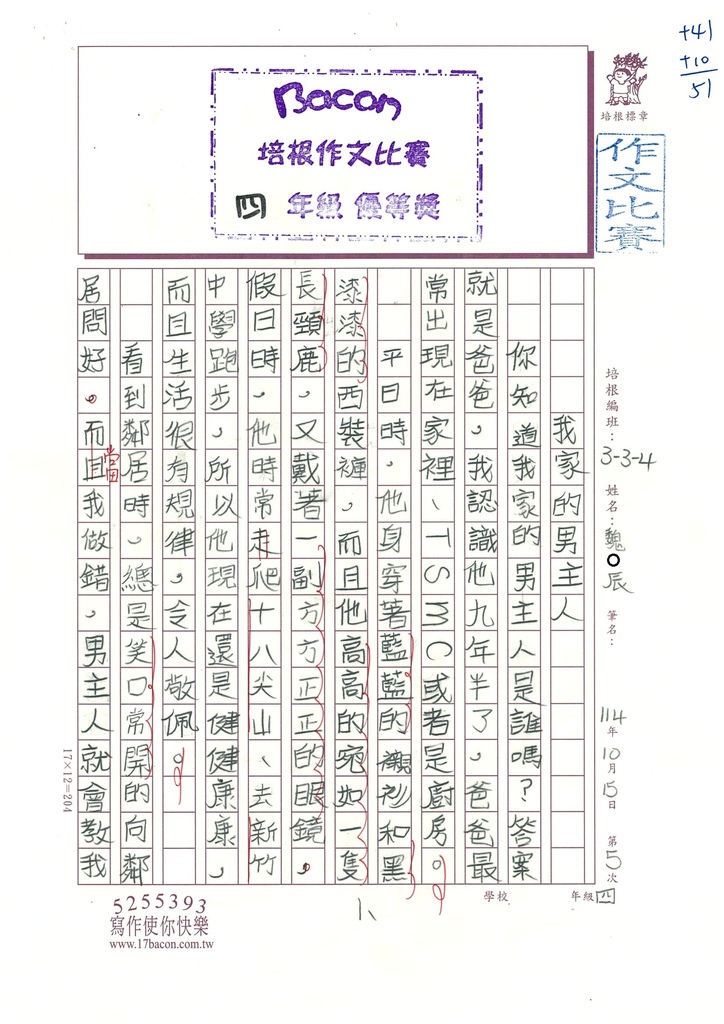 +41
+10
51
Bacon
培根作文比賽
四年級 優等獎
培根標章
作文比賽
培根編班：3-3-4 姓名：魏○辰 筆名：
114年10月15日 第5次
我家的男主人
你知道我家的男主人是誰嗎？答案
就是爸爸，我認識他九年半了，爸爸最
常出現在家裡、TSMC或者是廚房。
平日時，他身穿著藍藍的襯衫和黑
漆漆的西裝褲，而且他高高的宛如一隻
長頸鹿，又戴著一副方方正正的眼鏡。
假日時，他時常走爬十八尖山、去新竹
中學跑步，所以他現在還是健健康康，
而且生活很有規律，令人敬佩。
看到鄰居時，總是笑口常開的向鄰
居問好。而且當我做錯，男主人就會教我
17×12=204
學校 四年級
5255393
寫作使你快樂
www.17bacon.com.tw